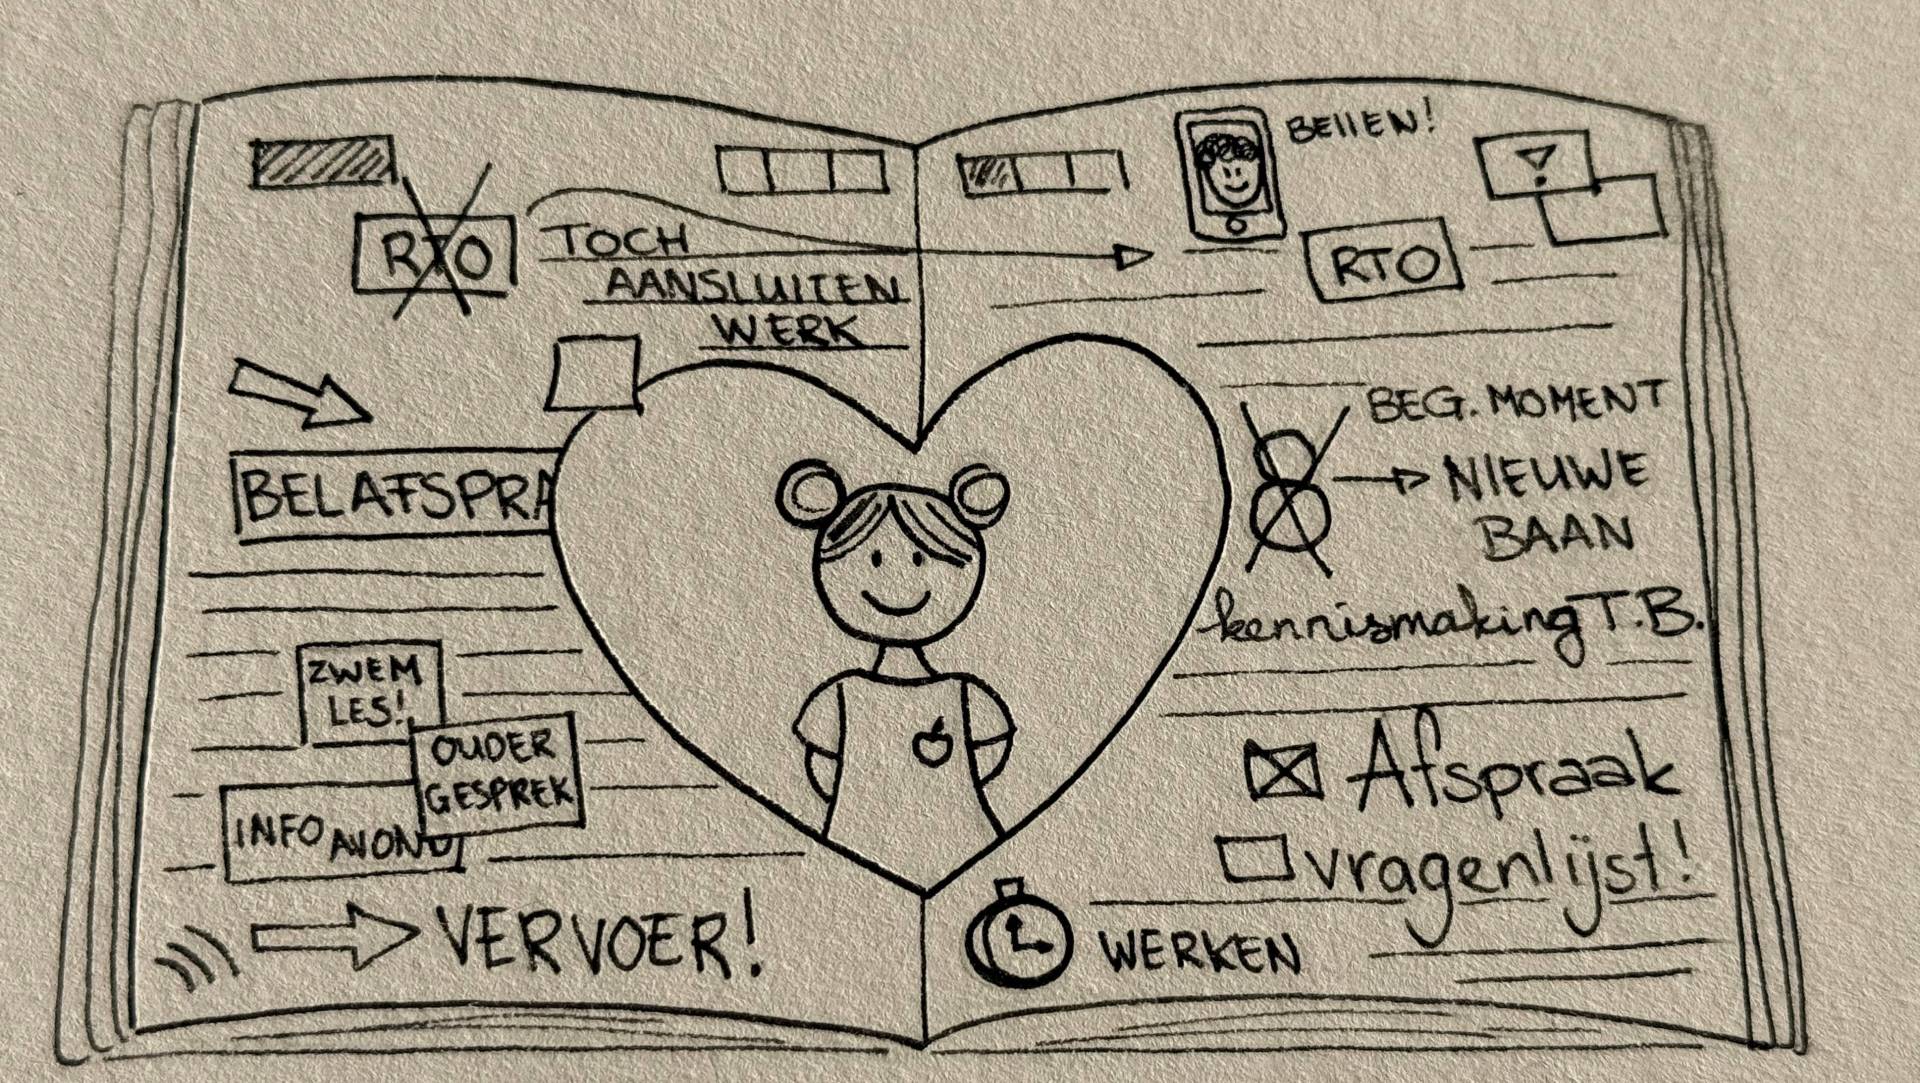 RTO
TOCH
AANSLUITEN
WERK
BELAFSPRA
ZWEM
LES!
OUDER
GESPREK
INFO AVOND
VERVOER!
BELLEN!
RTO
BEG. MOMENT
NIEUWE
BAAN
kennismaking T.B.
Afspraak
vragenlijst!
WERKEN